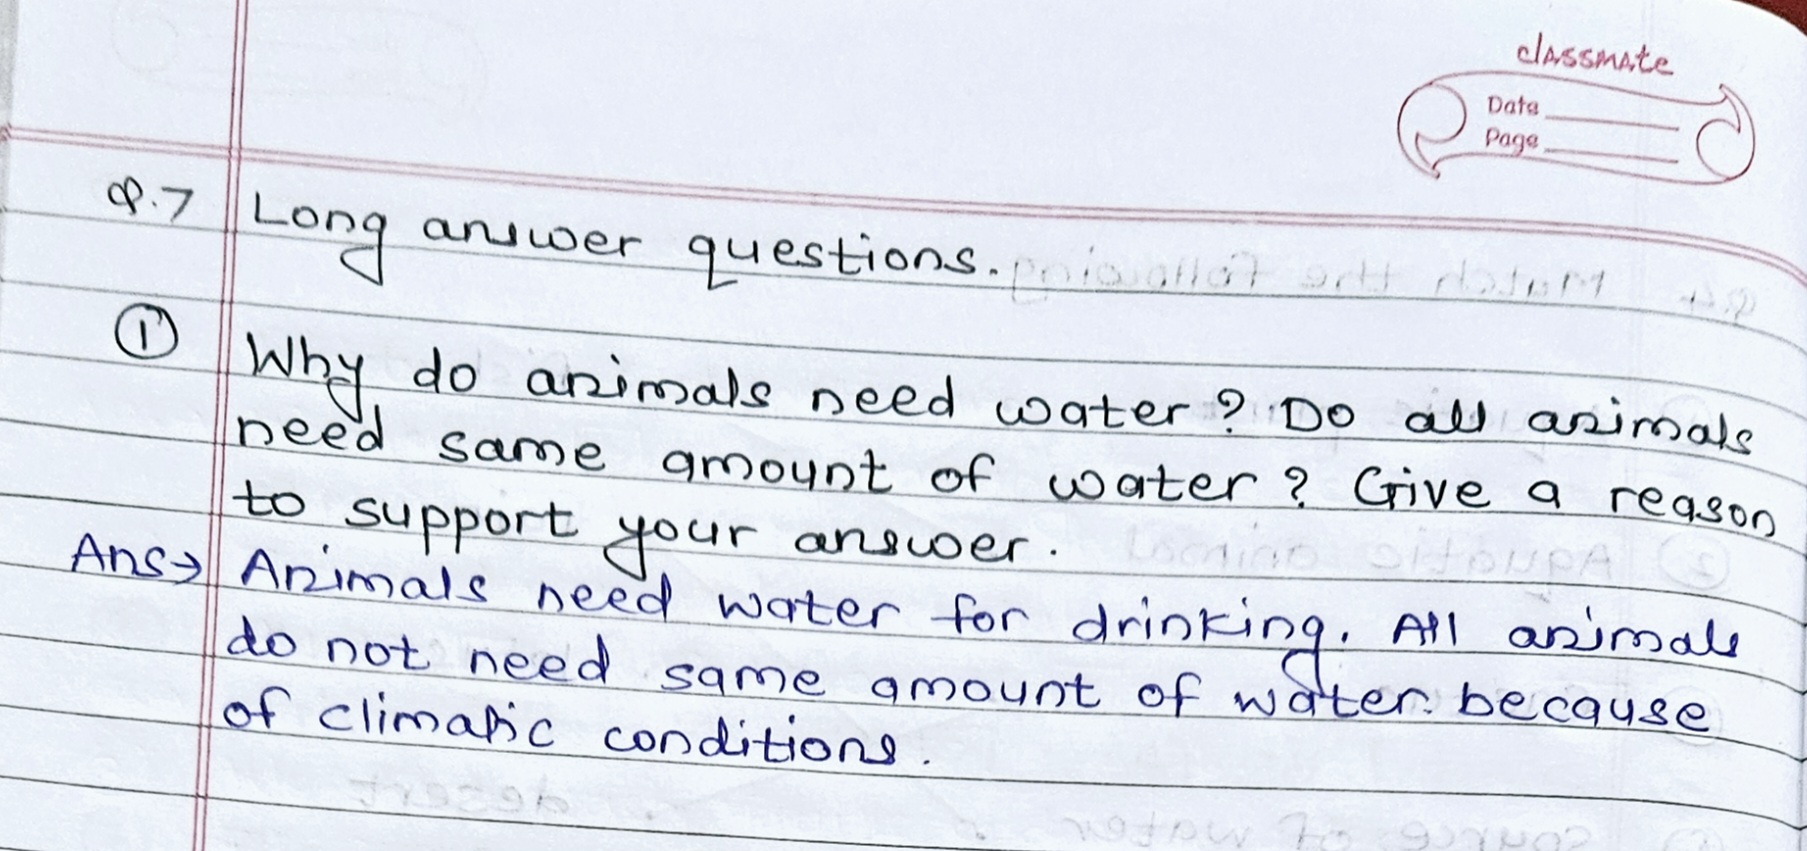 classmate
Date
Page
Q.7 Long answer questions.
① Why do animals need water? Do all animals
need same amount of water? Give a reason
to support your answer.
Ans→ Animals need water for drinking. All animals
do not need same amount of water. because
of climatic conditions.